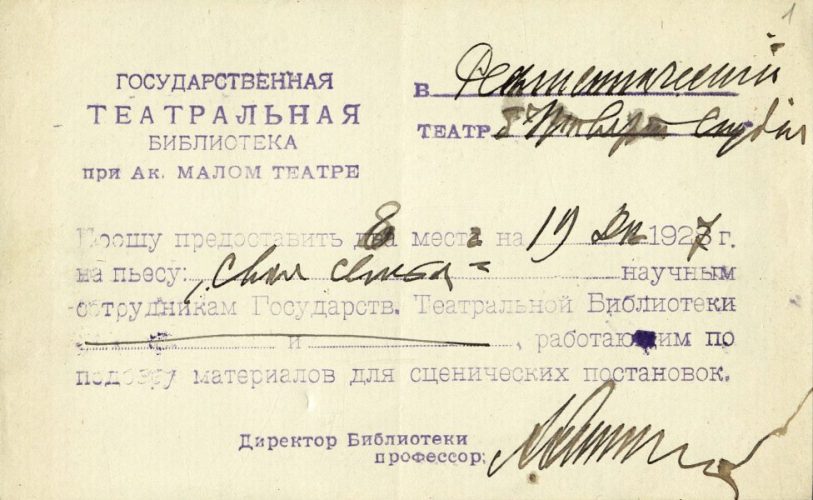 1
ГОСУДАРСТВЕННАЯ
ТЕАТРАЛЬНАЯ
БИБЛИОТЕКА
при Ак. МАЛОМ ТЕАТРЕ
В Реалистический
ТЕАТР
Прошу предоставить два места на 19 Дк 1927 г.
на пьесу: „Своя семья" научным
сотрудникам Государств. Театральной Библиотеки
и , работающим по
подбору материалов для сценических постановок.
Директор Библиотеки
профессор: